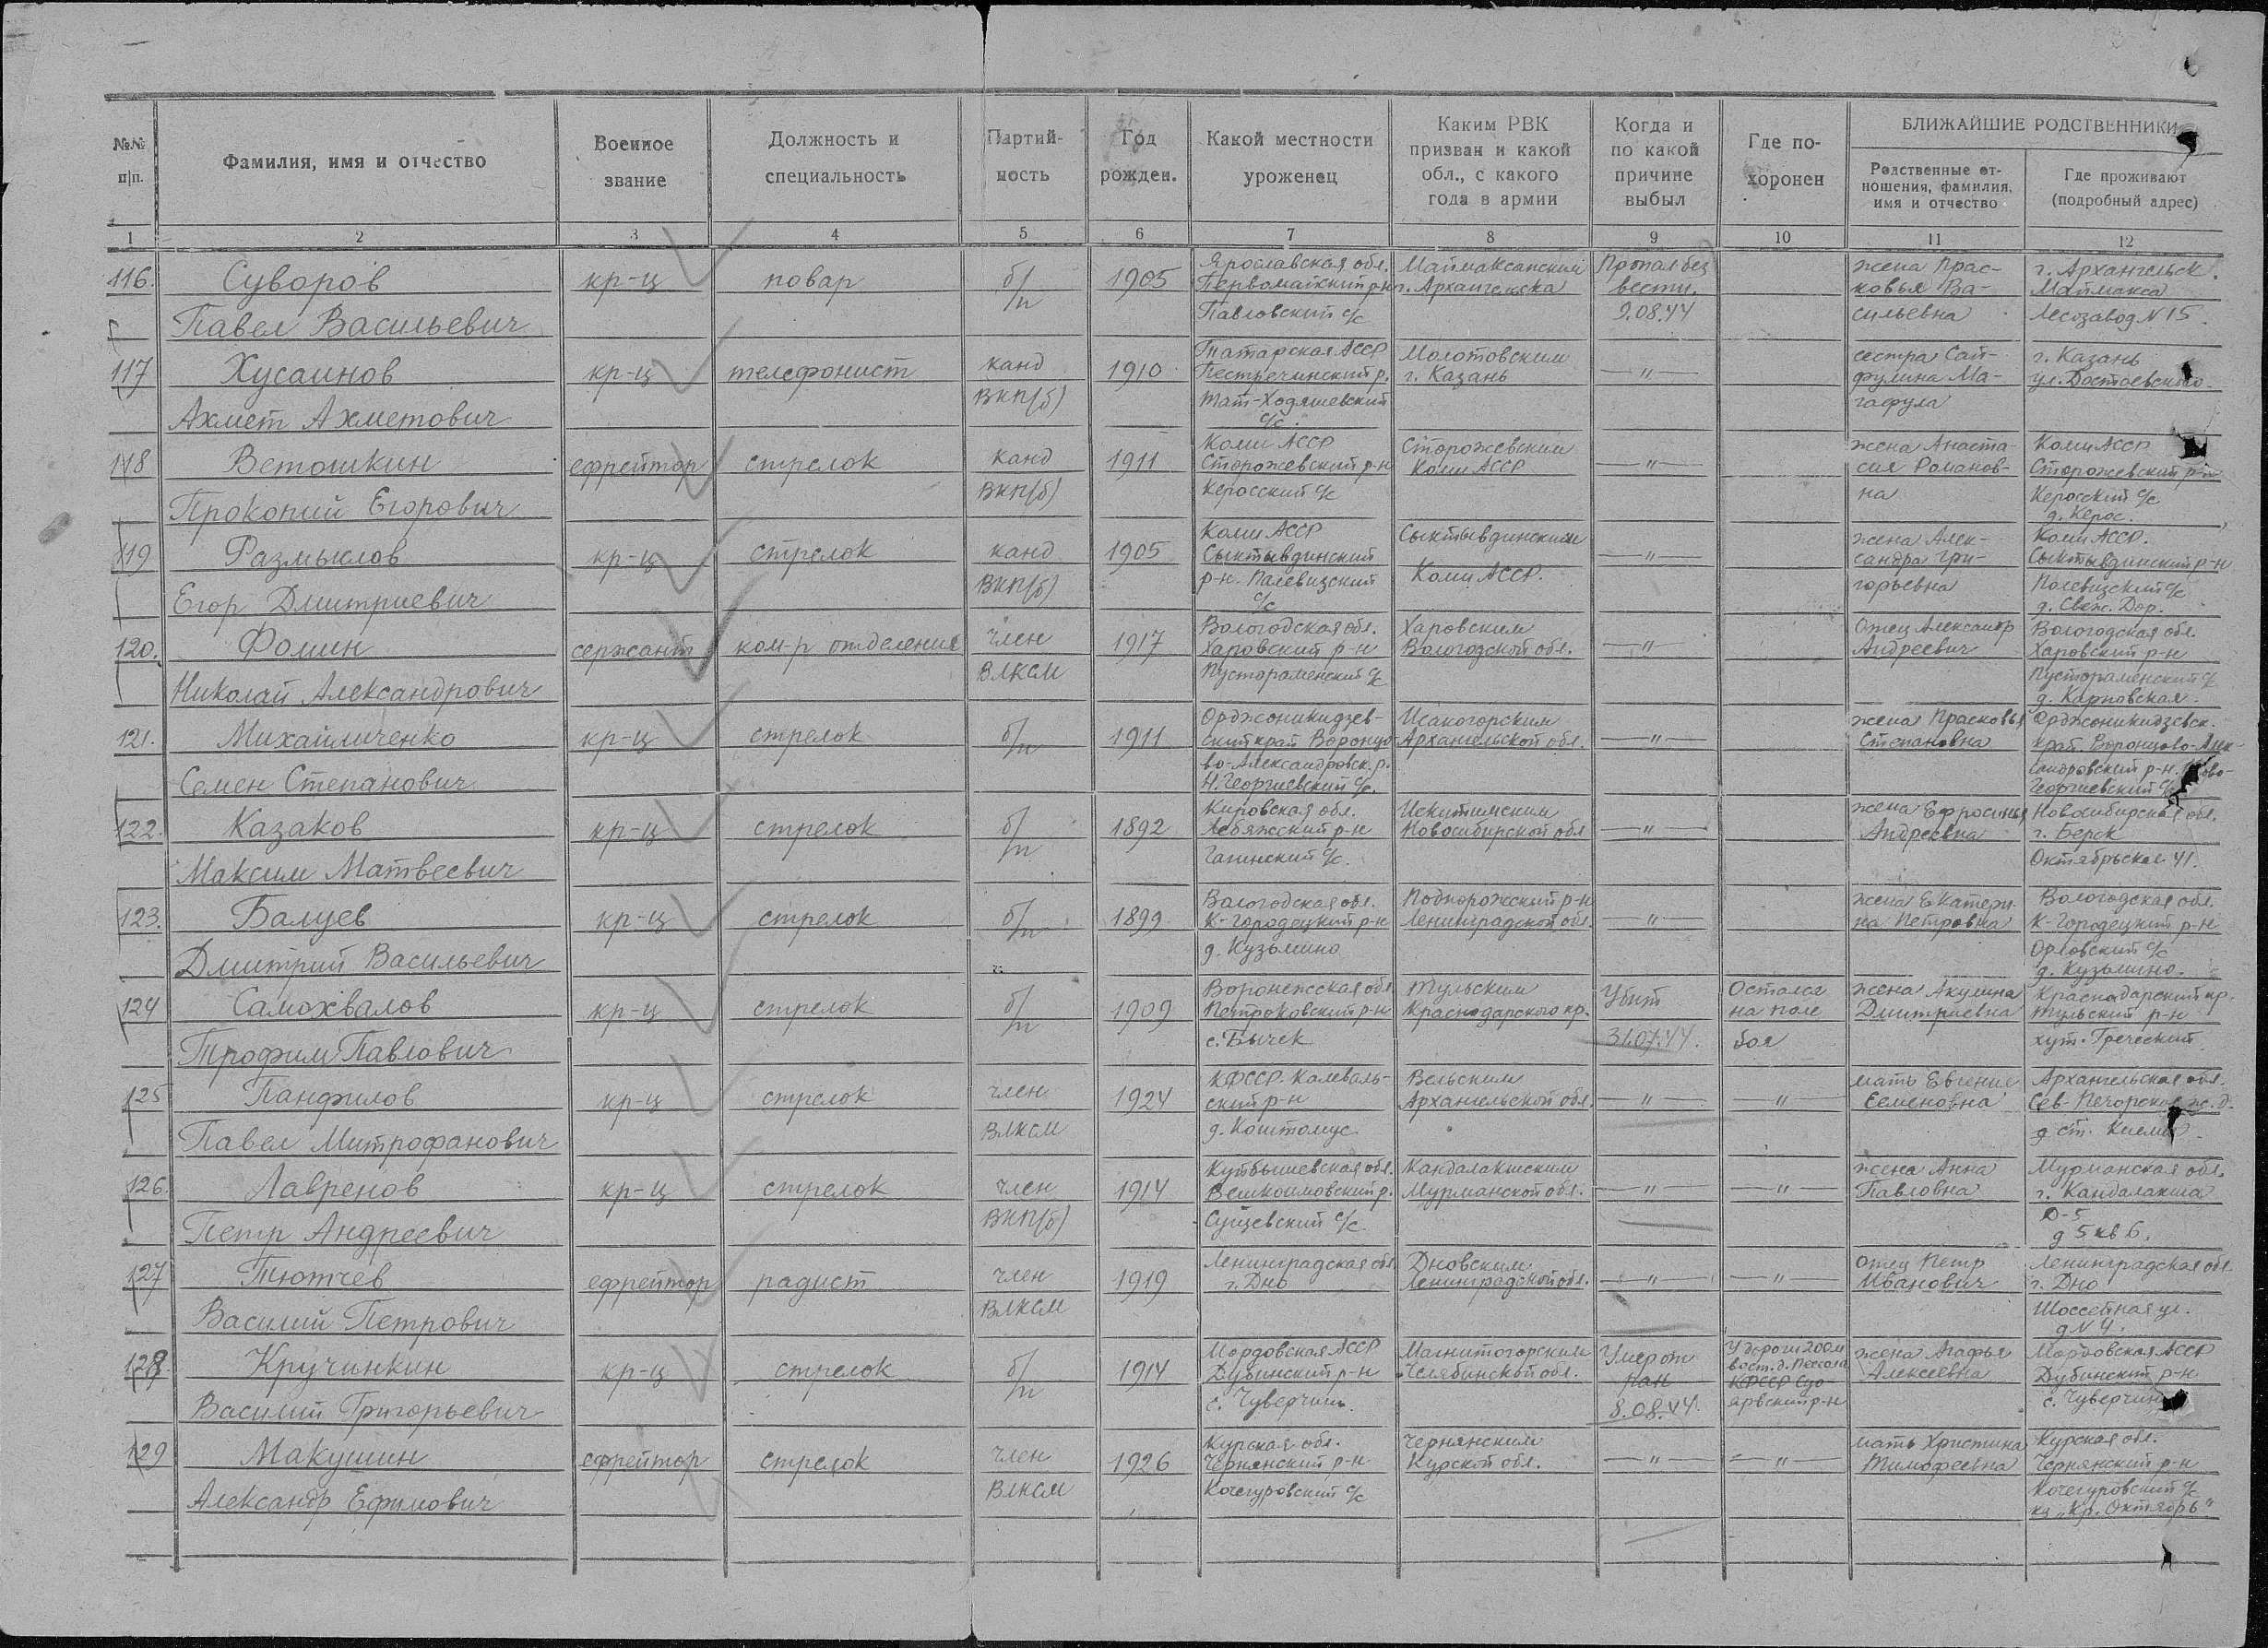 №№ п|п.
Фамилия, имя и отчество
Военное звание
Должность и специальность
Партий-ность
Год рожден.
Какой местности уроженец
Каким РВК призван и какой обл., с какого года в армии
Когда и по какой причине выбыл
Где по-хоронен
БЛИЖАЙШИЕ РОДСТВЕННИКИ
Родственные от-ношения, фамилия, имя и отчество
Где проживают (подробный адрес)
1 2 3 4 5 6 7 8 9 10 11 12
116. Суворов кр-ц повар б/п 1905 Ярославская обл. Маймаксанским Пропал без жена Прас- г. Архангельск.
Первомайский р-н г. Архангельска вести. ковья Ва- Маймакса
Павел Васильевич Павловский с/с 9.08.44 сильевна Лесозавод N 15.
117 Хусаинов кр-ц телефонист канд 1910 Татарская АССР Молотовским — " — сестра Сай- г. Казань
Пестречинский р. г. Казань фулина Ма- ул. Достоевского
Ахмет Ахметович ВКП(б) Тат-Ходяшевский с/с. гафула
118 Ветошкин ефрейтор стрелок канд 1911 Коми АССР Сторожевским — " — жена Анаста- Коми АССР
Сторожевский р-н Коми АССР сия Романов- Сторожевский р-н
Прокопий Егорович ВКП(б) Керосский с/с на Керосский с/с
д. Керос.
119 Размыслов кр-ц стрелок канд 1905 Коми АССР Сыктывдинским — " — жена Алек- Коми АССР.
Сыктывдинский Коми АССР. сандра Гри- Сыктывдинский р-н
Егор Дмитриевич ВКП(б) р-н. Палевицский с/с горьевна Полевицский с/с
120. Фомин сержант ком-р отделения член 1917 Вологодская обл. Харовским — " — Отец Александр Вологодская обл.
Харовский р-н Вологодской обл. Андреевич Харовский р-н
Николай Александрович ВЛКСМ Пустораменский с/с Пустораменский с/с
д. Карповская.
121. Михайличенко кр-ц стрелок б/п 1911 Орджоникидзев- Исакогорским — " — жена Прасковья Орджоникидзевск.
ский край Воронцо- Архангельской обл. Степановна край. Воронцово-Алек-
во-Александровск. р. сандровский р-н. Ново-
Семен Степанович Н. Георгиевский с/с. Георгиевский с/с
122. Казаков кр-ц стрелок б/п 1892 Кировская обл. Искитимским — " — жена Ефросинья Новосибирская обл.
Лебяжский р-н Новосибирской обл Андреевна г. Берск
Максим Матвеевич с/с. Октябрьская 41.
123. Балуев кр-ц стрелок б/п 1899 Вологодская обл. Подпорожский р-н — " — жена Екатери- Вологодская обл.
К-Городецкий р-н Ленинградской обл. на Петровна К-Городецкий р-н
Дмитрий Васильевич д. Кузьмино Орловский с/с
д. Кузьмино.
124 Самохвалов кр-ц стрелок б/п 1909 Воронежская обл Тульским Убит Остался жена Акулина Краснодарский кр.
Петроковский р-н Краснодарского кр. на поле Дмитриевна Тульский р-н
Трофим Павлович с. Бычек 31.07.44. боя хут. Греческий
125 Панфилов кр-ц стрелок член 1924 КФССР. Калеваль- Вельским — " — — " — мать Евгения Архангельская обл.
ский р-н Архангельской обл. Семеновна Сев-Печорская ж. д.
Павел Митрофанович ВЛКСМ д. Коштомус
126. Лавренов кр-ц стрелок член 1914 Куйбышевская обл. Кандалакшским — " — — " — жена Анна Мурманская обл.
Вешкаимовский р. Мурманской обл. Павловна г. Кандалакша
Петр Андреевич ВКП(б) Сущевский с/с
д 5 кв 6.
127 Тютчев ефрейтор радист член 1919 Ленинградская обл Дновским — " — — " — Отец Петр Ленинградская обл.
г. Дно Ленинградской обл. Иванович г. Дно
Василий Петрович ВЛКСМ Шоссейная ул.
д N 4.
128. Кручинкин кр-ц стрелок б/п 1914 Мордовская АССР Магнитогорским Умер от У дороги 200 м жена Агафья Мордовская АССР
Дубинский р-н Челябинской обл. ран вост. д. КФССР Суо- Алексеевна Дубинский р-н
Василий Григорьевич с. Чуверчин. 8.08.44. ярвский р-н с. Чуверчин
129 Макушин ефрейтор стрелок член 1926 Курская обл. Чернянским — " — — " — мать Христина Курская обл.
Чернянский р-н Курской обл. Тимофеевна Чернянский р-н
Александр Ефимович ВЛКСМ Кочегуровский с/с Кочегуровский с/с
кз „Кр. Октябрь"